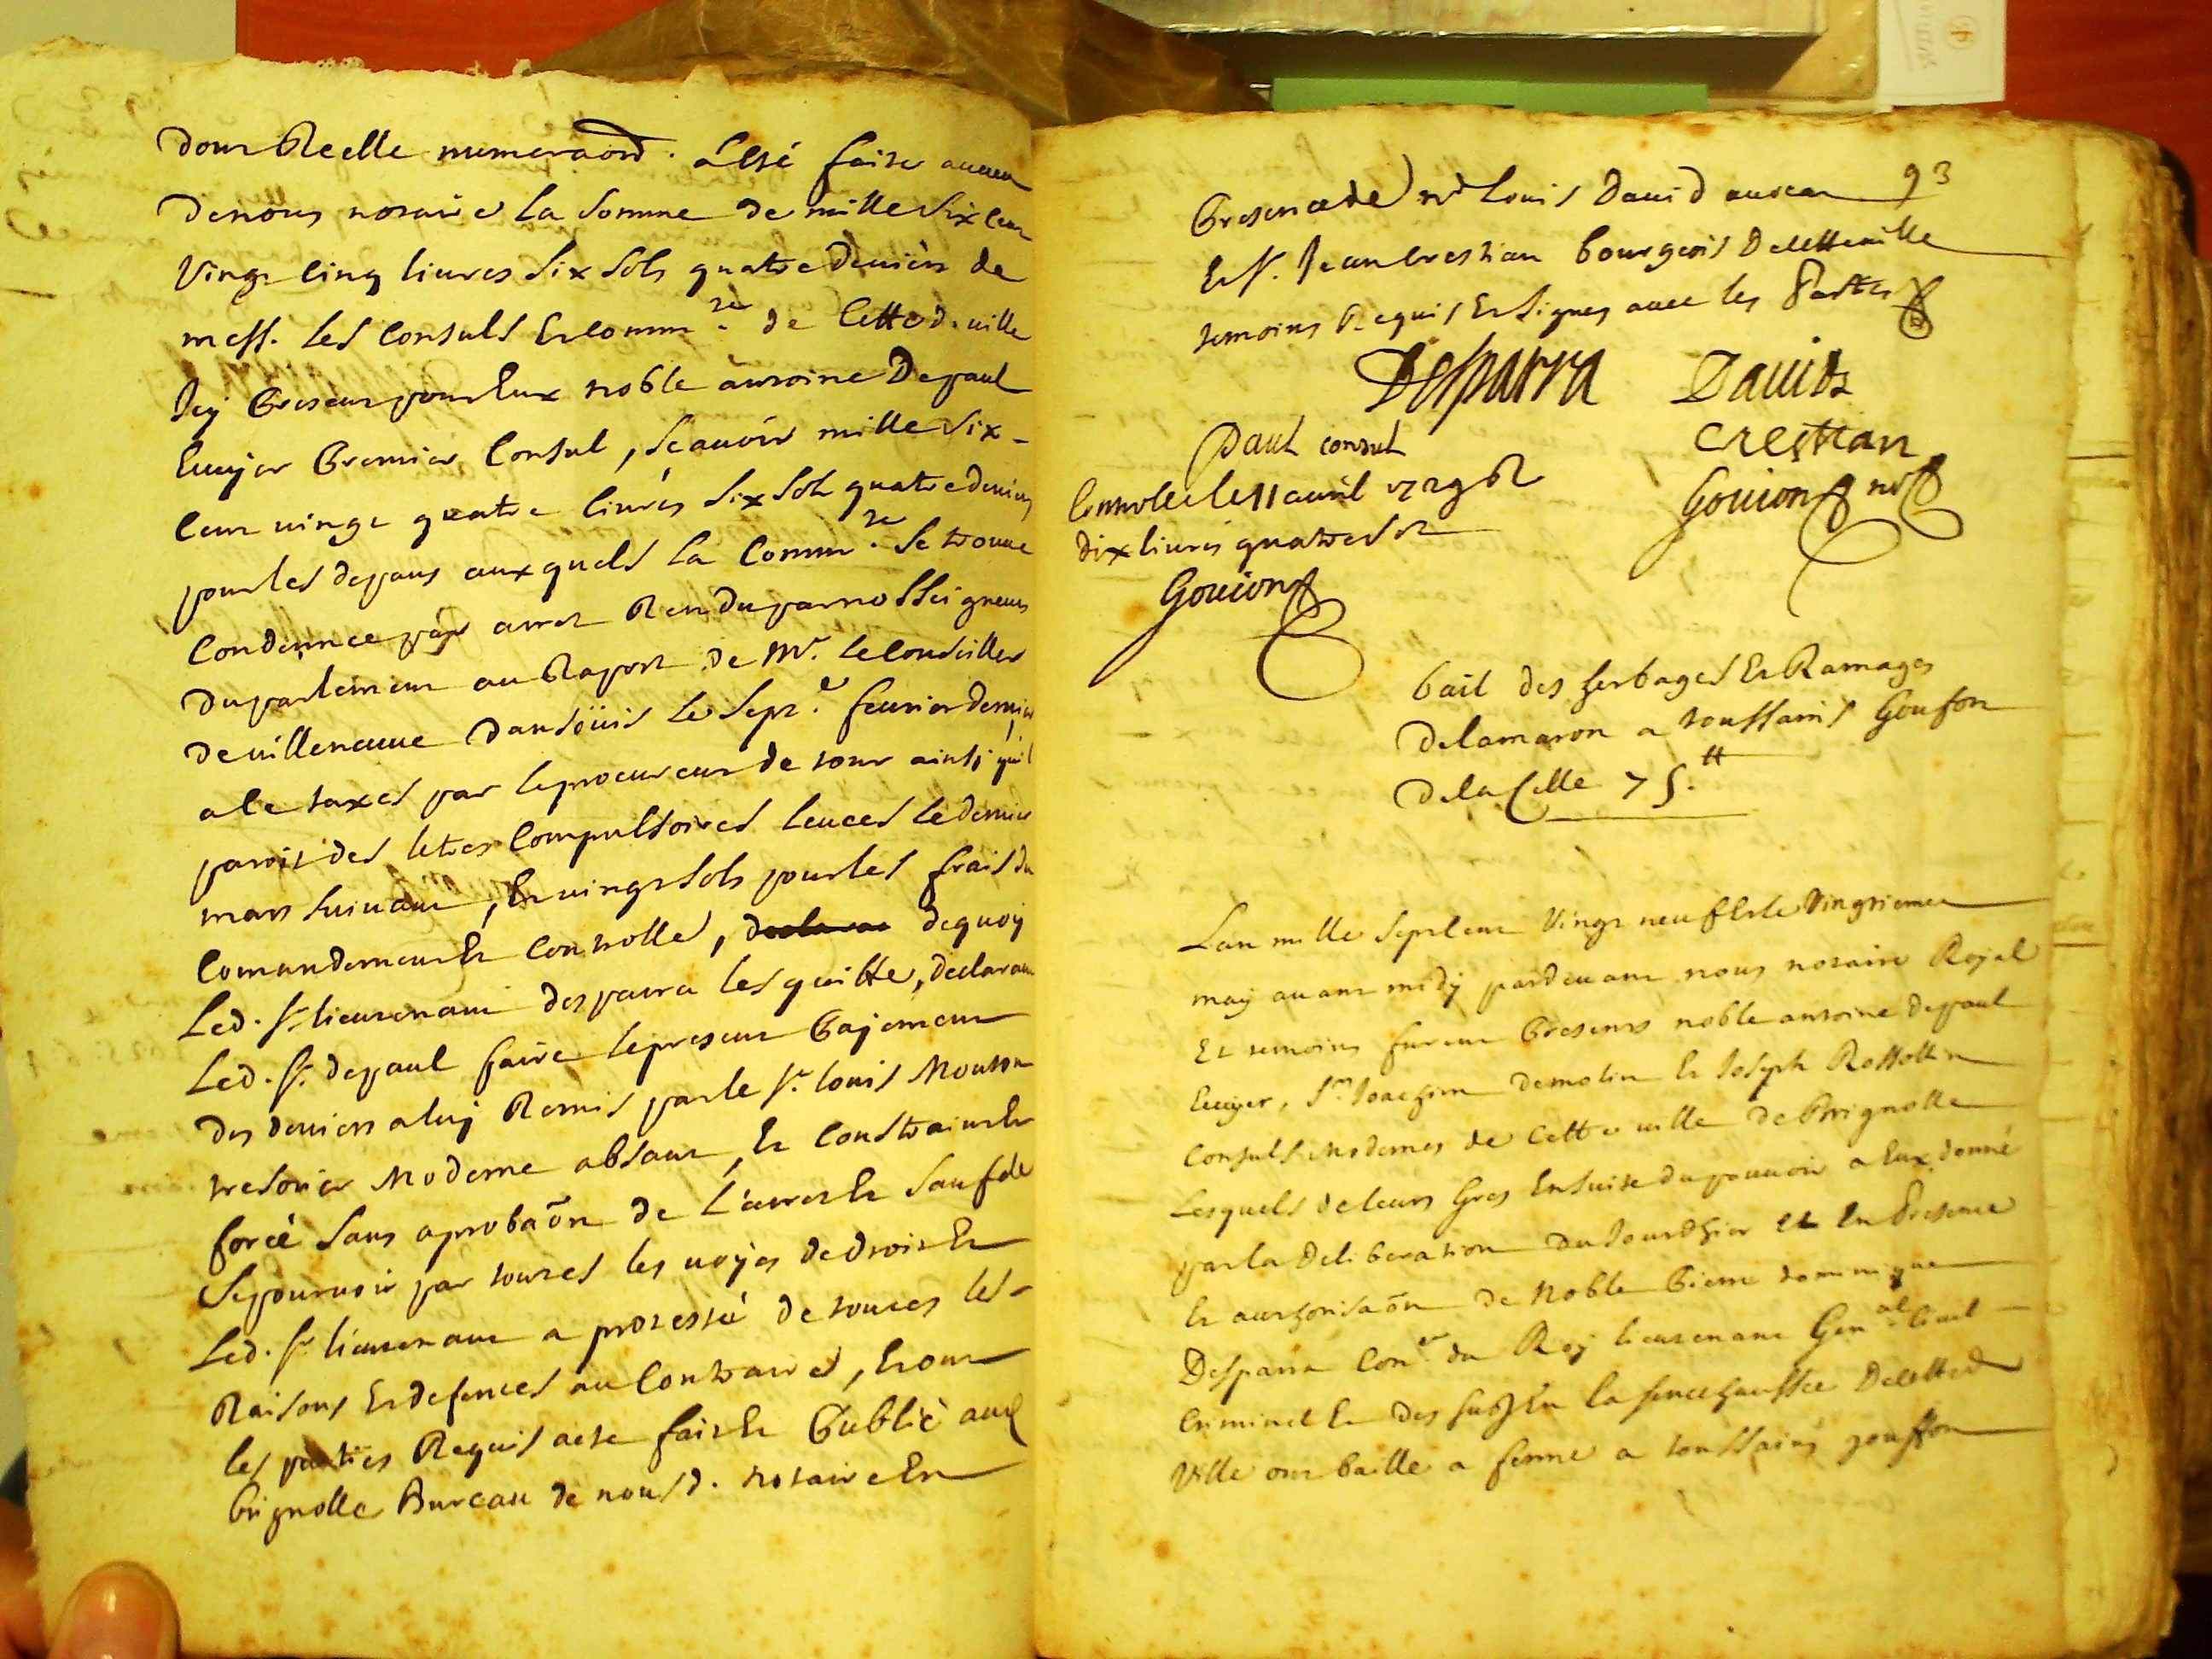 dont Reelle numeraõn a esté faite au veu
de nous notaire la somme de mille six cent
vingt cinq livres six sols quatre deniers de
mess. les Consuls et comm.té de cette d. ville
Icy present pour eux noble antoine Depaul
Ecuyer premier Consul, scavoir mille six
cent vingt quatre livres six sols quatre deniers
pour les depans auxquels la Comm.té se trouve
Condannee par arret Rendu par nosseigneurs
du parlement au Raport de Mr. le Conseiller
de villeneuve Dansoüis le sept.e fevrier dernier
a le taxes par le procureur de tour ainsi qu'il
paroit des letres Compulsoires levees le dernier
mars suivant, et vingt sols pour les frais du
Comandement et controlle, dequoy
Led. Sr. lieutenant desparra les quitte, declarant
Led. Sr. depaul faire le present payement
des deniers a luy Remis par le Sr. louis Mouton
tresorier Moderne absant, et contraint et
forcé sans aprobaõn de l'arret et sauf de
se pourvoir par toutes les voyes de droit et
Led. Sr. lieutenant a protesté de toutes les
Raisons et defences au Contraire, et ont
les parties Requis acte fait et publié aud
Brignolle Bureau de nousd. notaire en
93
presence de Mr Louis David
et Sr. Jean Crestian bourgeois de cette ville
temoins Requis et signes avec les parties
Desparra Davids
Paul consul Crestian
Controlle le 11 avril 1729 Goujon nre
dix livres quatre sols
Goujon
bail des herbages et Ramages
de lamaron a toussains Goufon
de la Celle 75.tt
L'an mille sept cent vingt neuf et le vingtieme
may avant midy pardevant nous notaire Royal
et temoins furent presents noble antoine depaul
Ecuyer, Sr. Joachim demolin et Joseph Rossollin
Consuls Modernes de cette ville de Brignolle
Lesquels de leurs gres ensuite du pouvoir a eux donné
par la deliberation du jourdhier et en presence
et authorisaõn de Noble pierre dominique
Desparra Con.er du Roy lieutenant Gen.al Civil
Criminel et des en la senechaussee de cette d
Ville ont baille a ferme a toussains gouffon